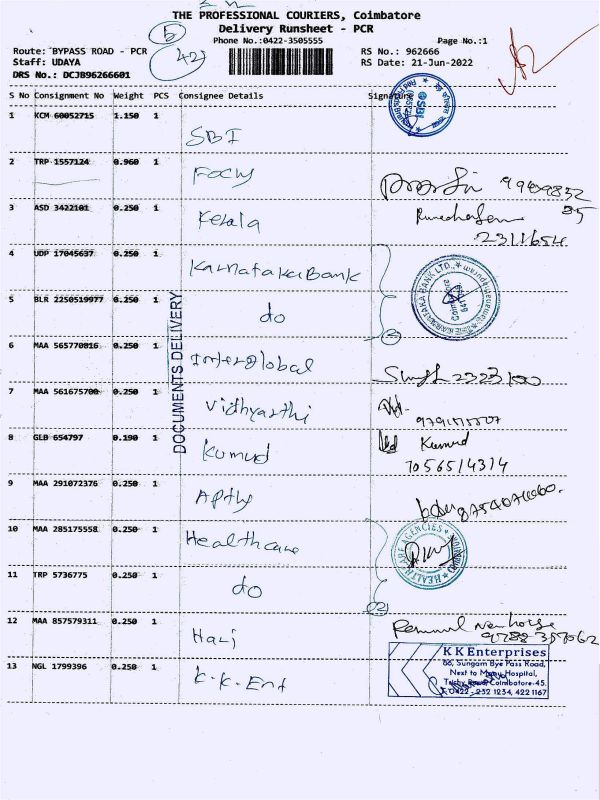 THE PROFESSIONAL COURIERS, Coimbatore
Delivery Runsheet - PCR
Phone No.:0422-3505555
Page No.:1
5
42
Route: BYPASS ROAD - PCR
Staff: UDAYA
DRS No.: DCJB96266601
RS No.: 962666
RS Date: 21-Jun-2022
S No Consignment No Weight PCS Consignee Details Signature
1 KCM 60052715 1.150 1 SBI
SBI
2 TRP 1557124 0.960 1 Focus
3 ASD 3422101 0.250 1 Kerala
2311654
4 UDP 17045637 0.250 1 Karnataka Bank
KARNATAKA BANK LTD.
Coimbatore
5 BLR 2250519977 0.250 1 do
2
DOCUMENTS DELIVERY
6 MAA 565770016 0.250 1 Interglobal
7 MAA 561675700 0.250 1 Vidhyarthi
8 GLB 654797 0.190 1 Kumud Kumud
7056514314
9 MAA 291072376 0.250 1
10 MAA 285175558 0.250 1 Healthcare
HEALTHCARE AGENCIES
11 TRP 5736775 0.250 1 do
02
12 MAA 857579311 0.250 1 Hari
13 NGL 1799396 0.250 1 K.K. Ent
K K Enterprises
66, Sungam Bye Pass Road,
Next to Hospital,
Trichy Road, Coimbatore-45.
0422 - 232 1234, 422 1167